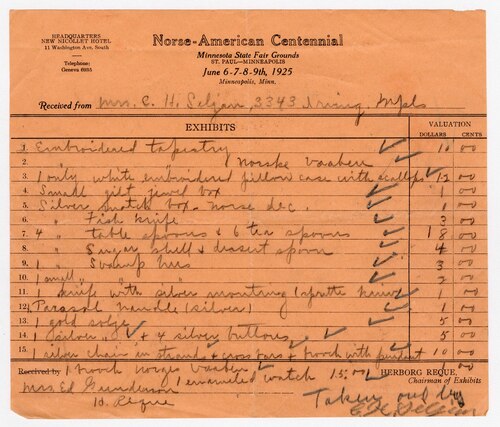 HEADQUARTERS
NEW NICOLLET HOTEL
11 Washington Ave, South
Telephone:
Geneva 6955
Norse-American Centennial
Minnesota State Fair Grounds
ST. PAUL—MINNEAPOLIS
June 6-7-8-9th, 1925
Minneapolis, Minn.
Received from Mrs. C. H. 3343 Irving, Mpls
EXHIBITS
VALUATION
DOLLARS CENTS
1. Embroidered tapestry 10 00
2. " Norske Vaaben
3. 1 only white embroidered pillow case with scallops 12 00
4. Small gilt jewel box 1 00
5. Silver match box - norse dec. 1 00
6. " Fish knife 3 00
7. 4 " table spoons & 6 tea spoons 18 00
8. " Sugar shell & dessert spoon 4 00
9. 1 " 3 00
10. 1 small " 2 00
11. knife with silver mounting 1 00
12. Parasol handle (silver) 1 00
13. 1 gold 5 00
14. 1 silver " & 4 silver buttons 5 00
15. 1 silver chain in strands & cross bars & brooch with pendant 10 00
Received by 1 brooch norges Vaaben
1 enameled watch 15.00
HERBORG REQUE,
Chairman of Exhibits
Mrs. Ed Gunderson
H. Reque
Taken out by